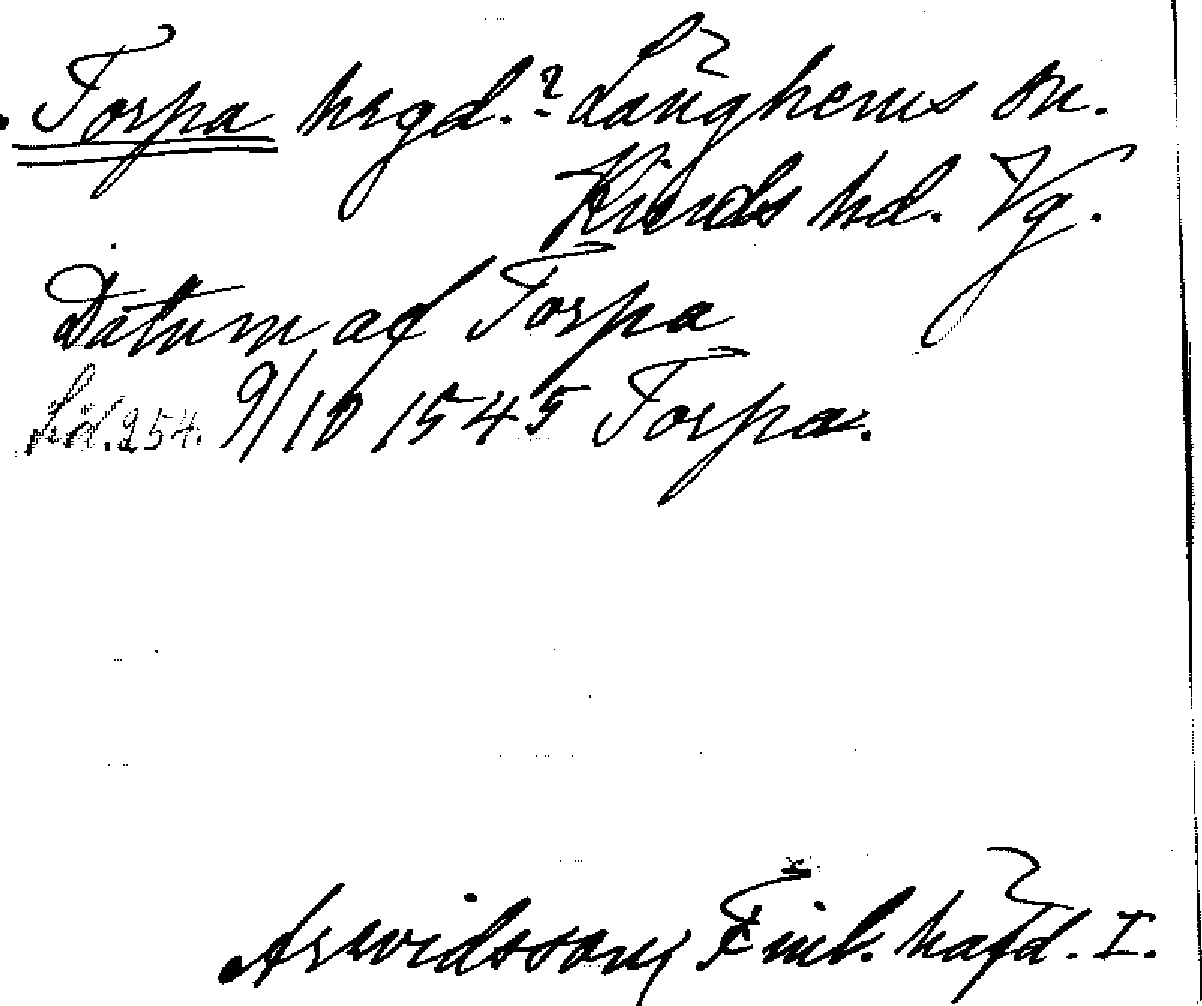 Torpa hrgd.? Länghems sn.
Kinds hd. Vg.
Datum af Torpa
Sid. 254. 9/10 1545 Torpa.
Arwidsson, Finl. häfd. I.